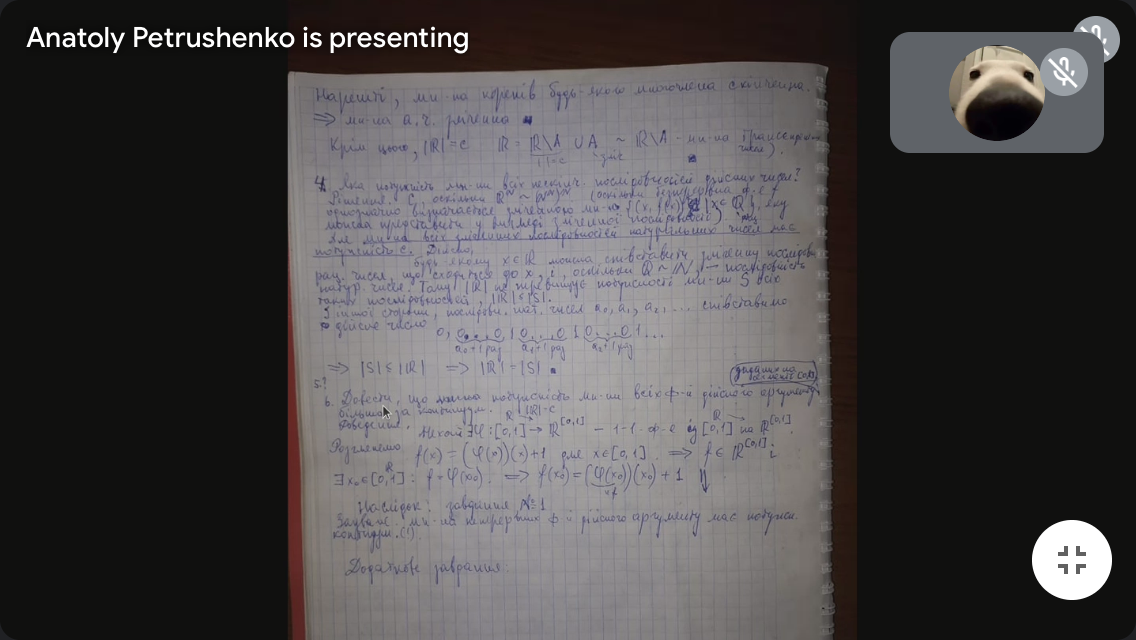 Anatoly Petrushenko is presenting
Нарешті, ми-на коренів будь-якого многочлена скінченна.
⇒ ми-на а.ч. зліченна
Крім цього, |ℝ|=c ℝ = ℝ\A ∪ A ~ ℝ\A - ми-на
4. Яка потужність ми-ни всіх нескінч. послідовностей дійсних чисел?
оскільки
однозначно визначається зліченною ми-ю {(x, f(x)) | x ∈ ℚ}, яку
можна представити у вигляді зліченної послідовності)
ми-на всіх послідовностей натуральних чисел має
потужність c. Дійсно,
будь якому x∈ℝ можна співставити зліченну послідовн.
рац. чисел, що сходиться до x, і, оскільки ℚ ~ ℕ, – послідовність
натур. чисел. Тому |ℝ| не перевищує потужності ми-ни S всіх
таких послідовностей, |ℝ| ≤ |S|.
З іншої сторони, послідовн. нат. чисел a₀, a₁, a₂, ... співставимо
дійсне число
0, 0...0 1 0...0 1 0...0 1 ...
a₀+1 раз a₁+1 раз a₂+1 раз
⇒ |S| ≤ |ℝ| ⇒ |ℝ| = |S|.
5.?
6. Довести, що потужність ми-ни всіх ф-й дійсного аргументу
більша за континуум. |ℝ|=c
Доведення. Нехай ∃φ: [0,1] → ℝ^[0,1] – 1-1-ф-я із [0,1] на ℝ^[0,1].
Розглянемо f(x) = (φ(x))(x)+1 для x∈[0,1] ⇒ f ∈ ℝ^[0,1];
∃x₀∈[0,1]: f = φ(x₀). ⇒ f(x₀) = (φ(x₀))(x₀) + 1
Наслідок: завдання №1
Зауваж. ми-на неперервних ф-й дійсного аргументу має потужн.
континуум.(!)
Додаткове завдання: